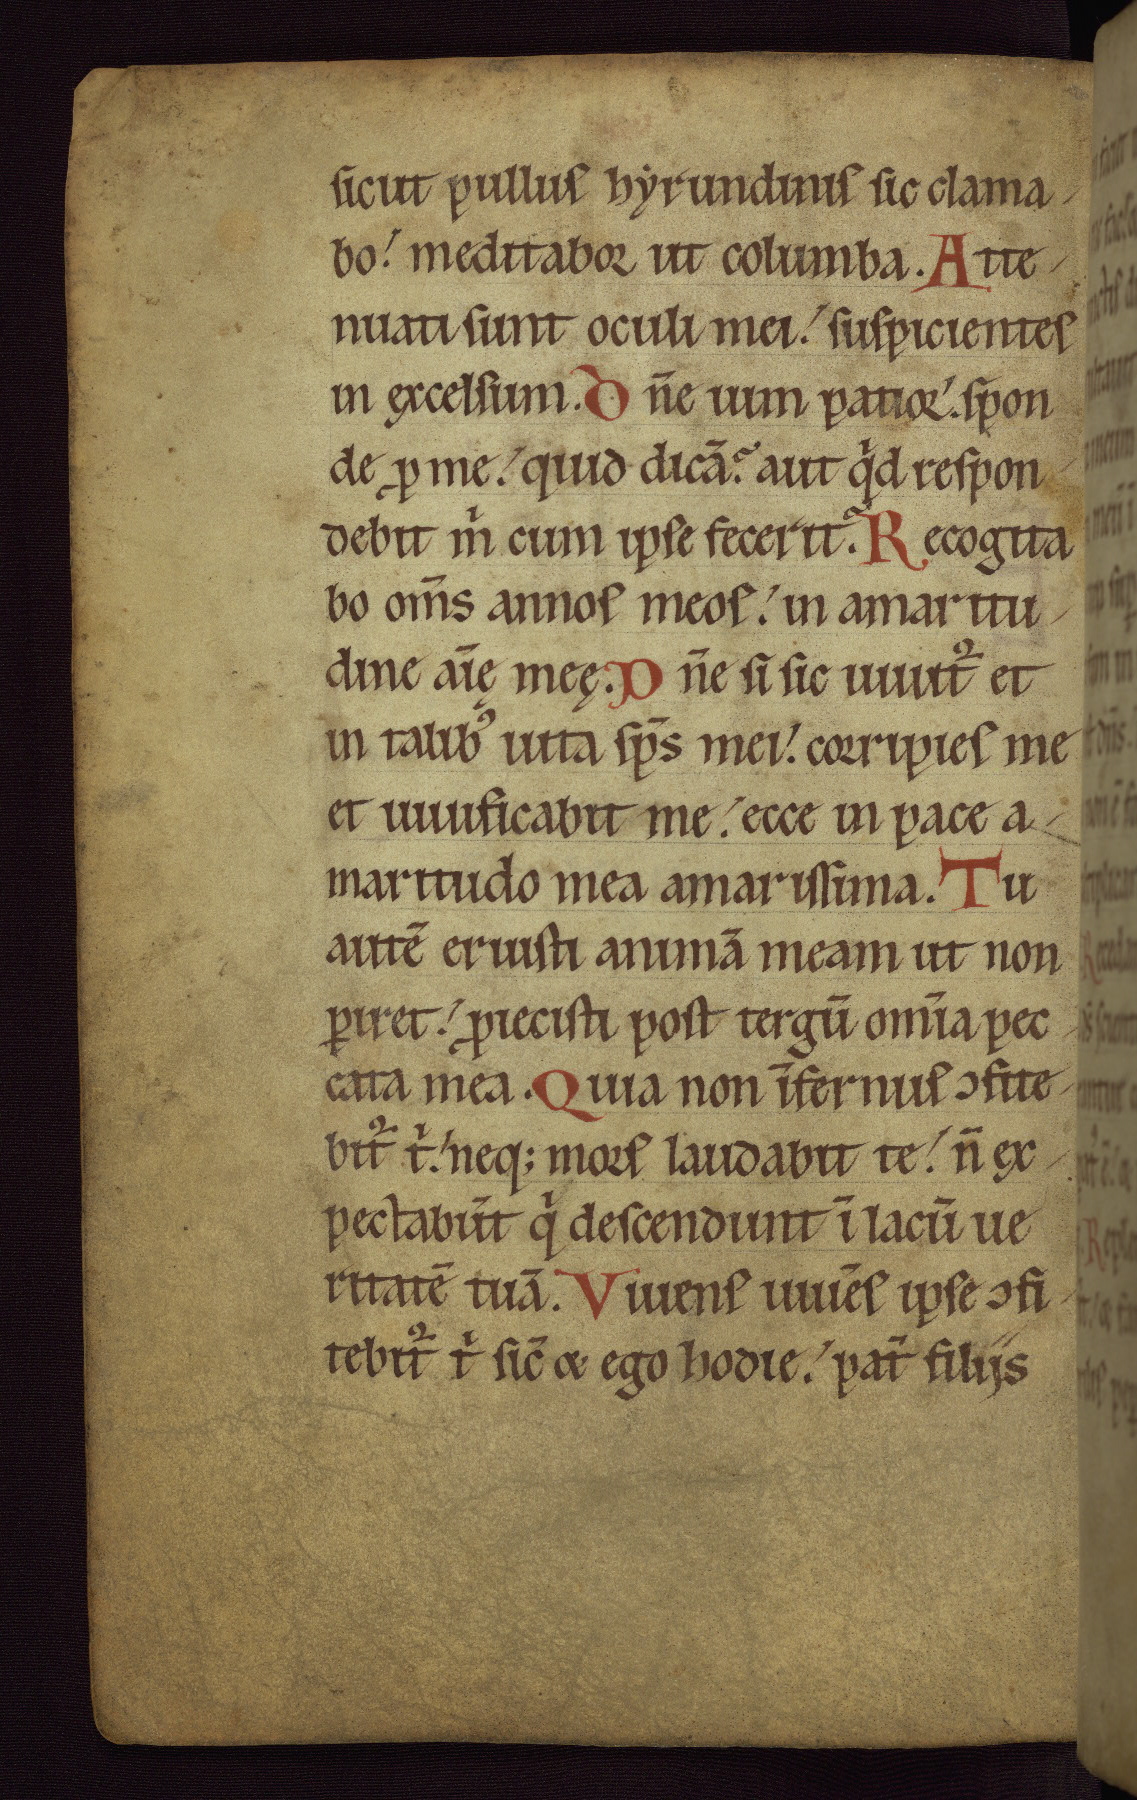 sicut pullus hẏrundinis sic clama-
bo! meditabor ut columba. Atte-
nuati sunt oculi mei! suspicientes
in excelsum. D ñe uim patior! spon
de ꝓ me! quid dicã? aut qͥd respon-
debit mͥ cum ipse fecerit? Recogita
bo om̃s annos meos! in amaritu-
dine aĩę meę. D ñe si sic uiuit᷑ et
in talibꝰ uita sp̃s mei! corripies me
et uiuificabit me! ecce in pace a-
maritudo mea amarissima. Tu
autẽ eruisti animã meam ut non
ꝑiret! ꝓiecisti post tergũ om̃ia pec-
cata mea. Quia non ĩfernus ꝯfite-
bit᷑ tͥ! neq; mors laudabit te! ñ ex-
pectabũt qͥ descendunt ĩ lacũ ue
ritatẽ tuã. Viuens uiuẽs ipse ꝯfi-
tebit᷑ tͥ sic̃ & ego hodie! pat̃ filijs